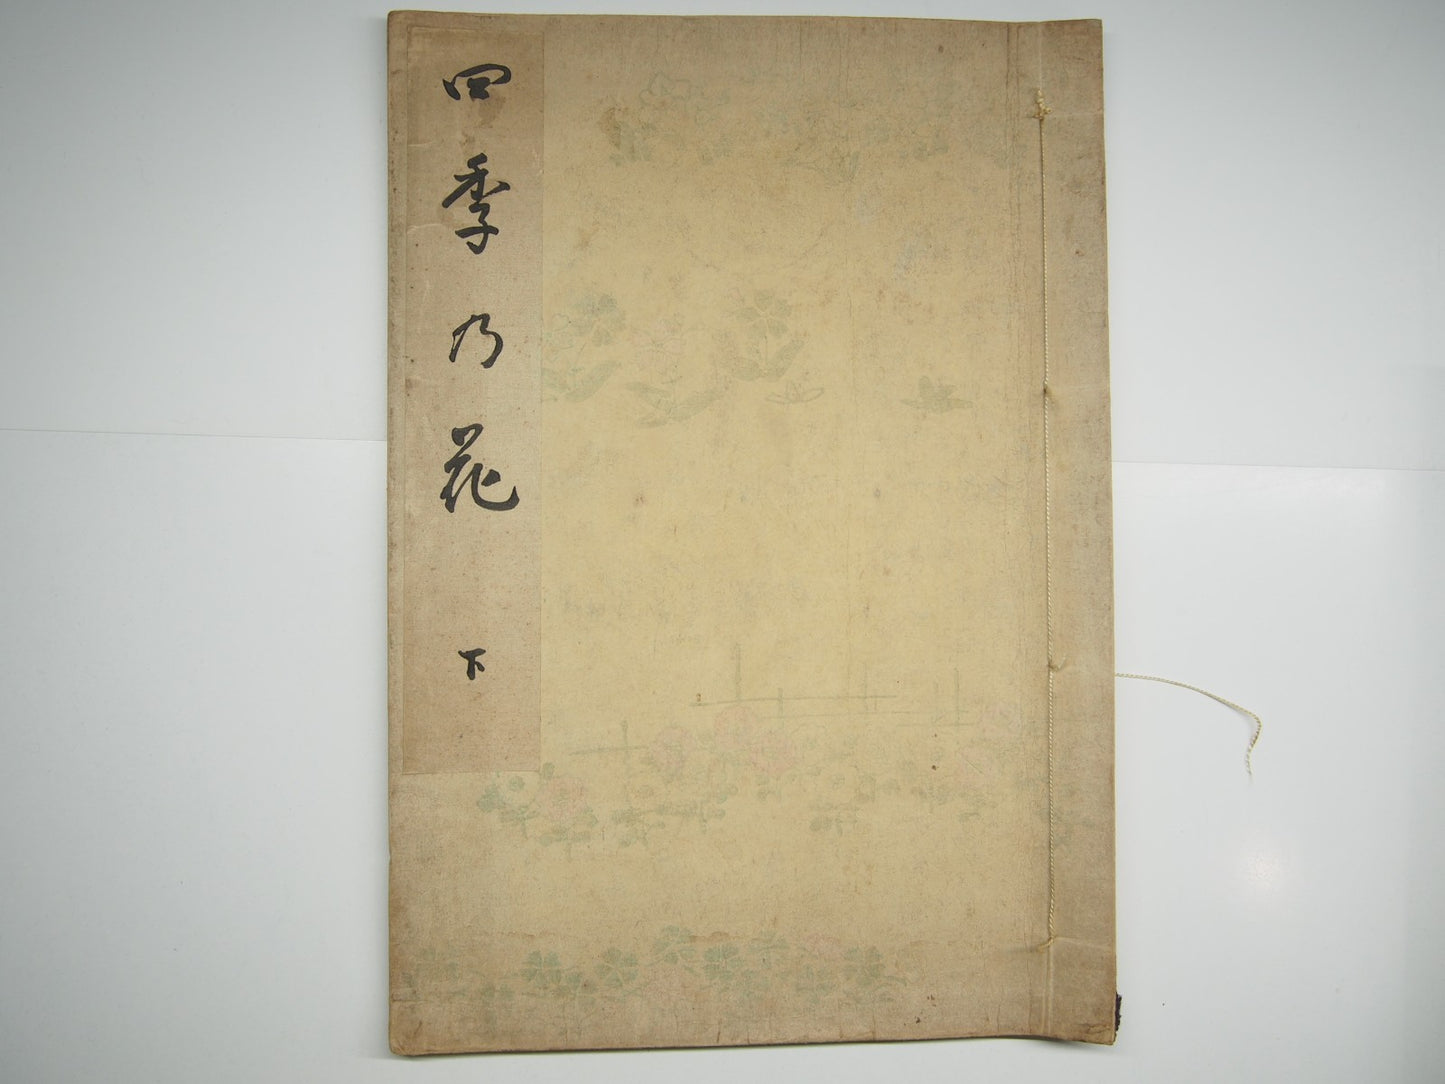 四季乃花 下